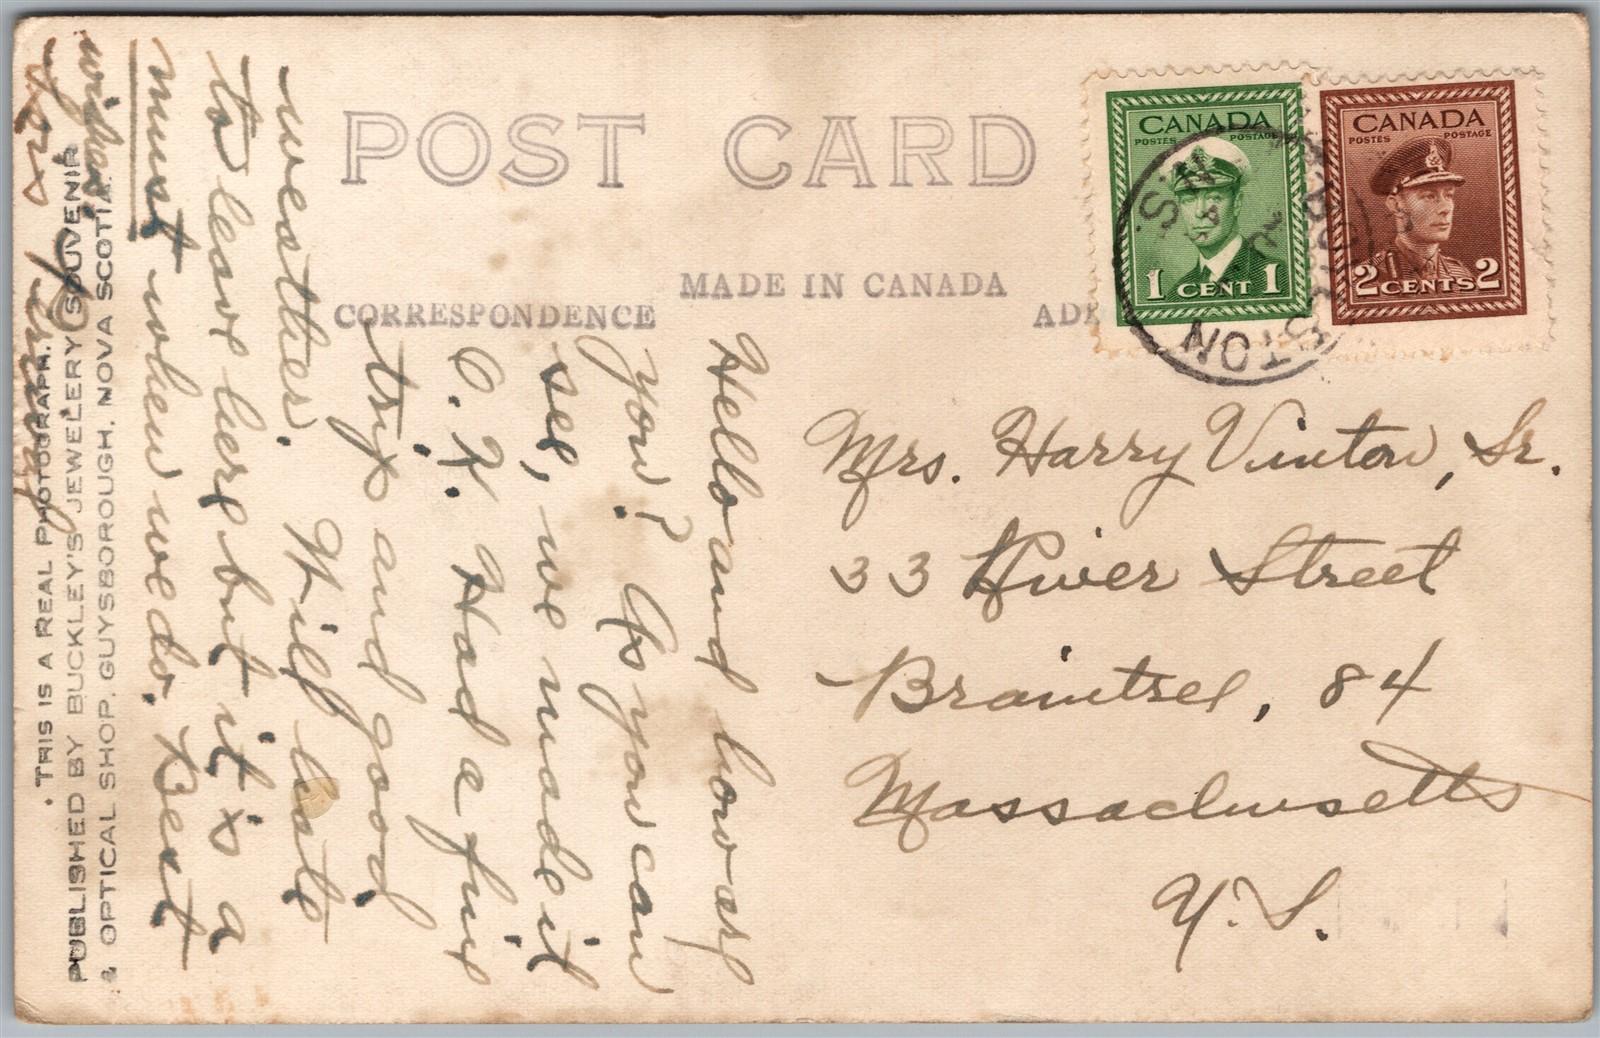 POST CARD
MADE IN CANADA
CORRESPONDENCE
CANADA
POSTES POSTAGE
1 CENT 1
CANADA
POSTES POSTAGE
2 CENTS 2
N.S.
Hello and how are
you? As you can
see, we made it
O.K. Had a fine
trip and good
weather. Will hate
to leave here but it is a
must when we do. Best
wishes
Mrs. Harry Vinton, Sr.
33 River Street
Braintree, 84
Massachusetts
U.S.
THIS IS A REAL PHOTOGRAPH.
PUBLISHED BY BUCKLEY'S JEWELERY SOUVENIR
& OPTICAL SHOP, GUYSBOROUGH, NOVA SCOTIA.